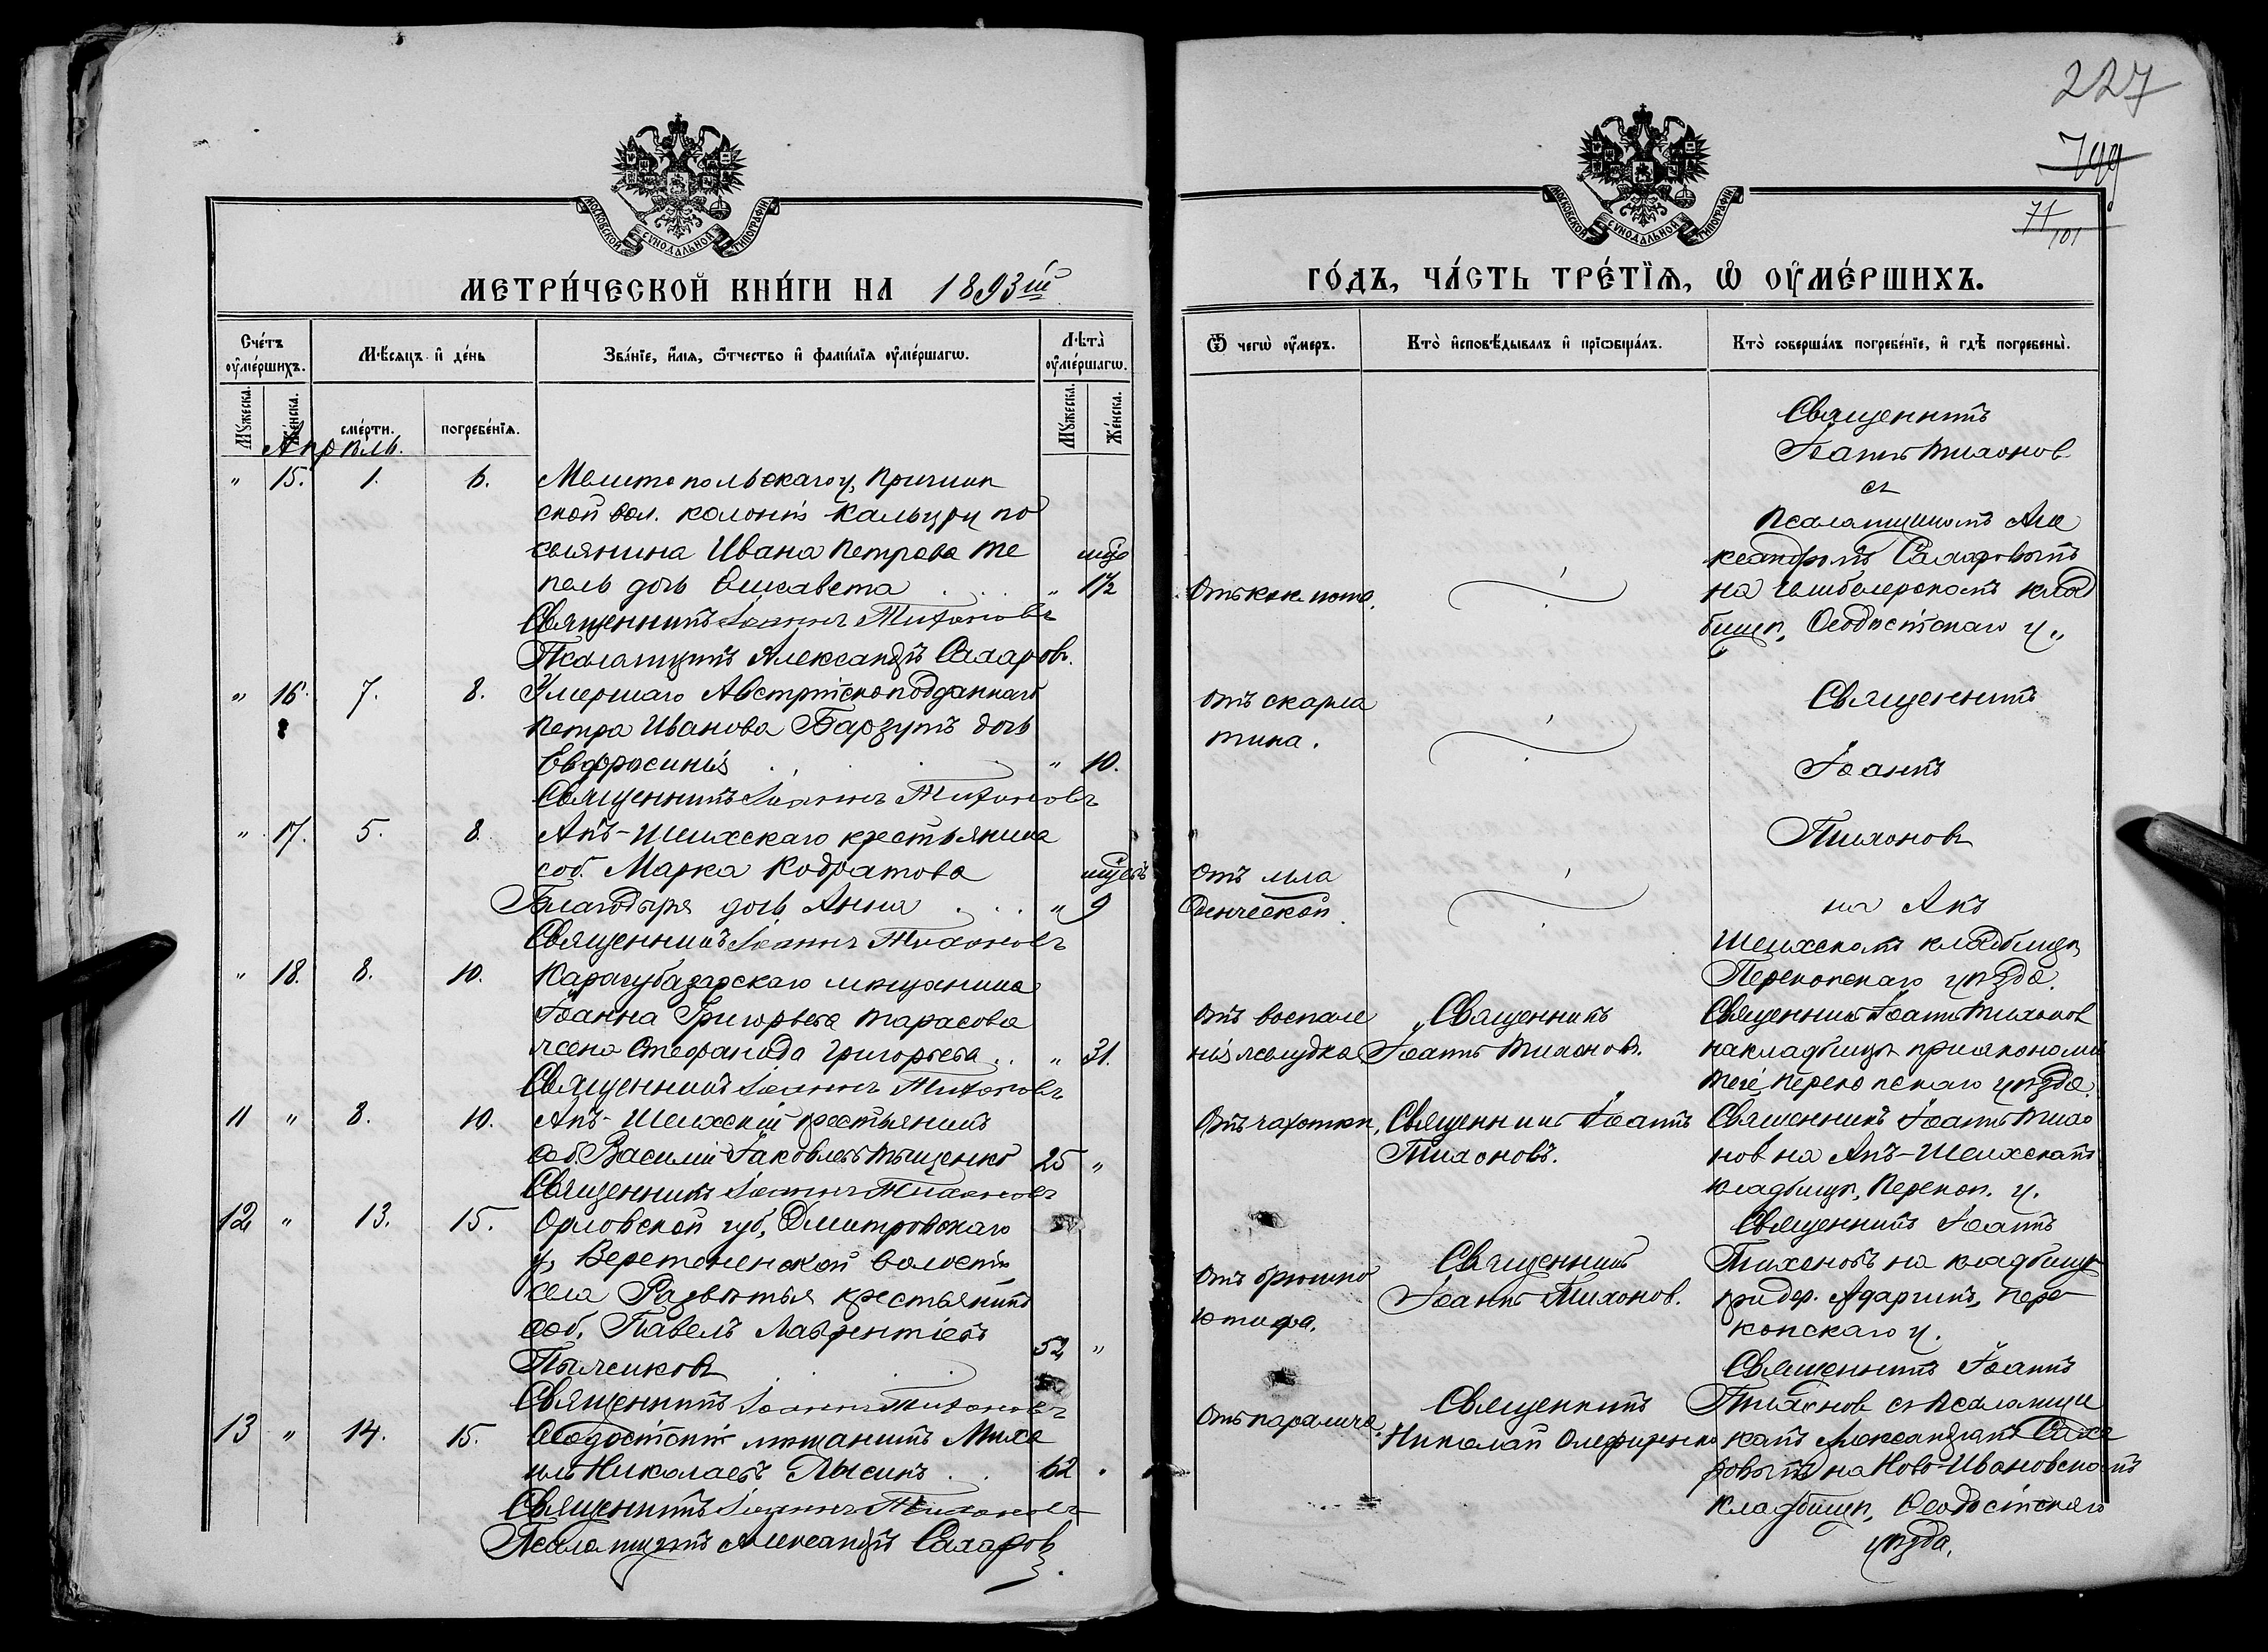 227
799
71/101
МОСКОВСКОЙ СѴНОДАЛЬНОЙ ТИПОГРАФІИ
МОСКОВСКОЙ СѴНОДАЛЬНОЙ ТИПОГРАФІИ
МЕТРИ́ЧЕСКОЙ КНИ́ГИ НА 1893ій
ГО́ДЪ, ЧА́СТЬ ТРЕ́ТЇѦ, Ѽ ОУ҆МЕ́РШИХЪ.
Сче́тъ оу҆ме́ршихъ.
Мѣ́сѧцъ и҆ де́нь
Зва́нїе, и҆́мѧ, ѻ҆́тчество и҆ фами́лїѧ оу҆ме́ршагѡ.
Лѣ̑та оу҆ме́ршагѡ.
Ѿ чегѡ̀ оу҆́меръ.
Кто̀ и҆сповѣ́дывалъ и҆ прїѡбща́лъ.
Кто̀ соверша́лъ погребе́нїе, и҆ гдѣ̀ погребены̀.
Мꙋ́жеска.
Же́нска.
сме́рти.
погребе́нїѧ.
Мꙋ́жеска.
Же́нска.
Апрѣль.
" 15. 1. 6. Мелитопольскаго у, Пришиб
ской вол. колоніи
селянина Ивана Петрова Те
пель дочь Елисавета " 1½
Священникъ Іоаннъ Тихоновъ
Псаломщикъ Александръ Сахаровъ.
Священникъ
Іоаннъ Тихонов
съ
Псаломщикомъ Але
ксандромъ Сахаровымъ
на клад
бищѣ, Ѳеодосійскаго у.,
" 16. 7. 8. Умершаго Австрійскоподданнаго
Петра Иванова Барзутъ дочь
Евфросинія " 10.
Священникъ Іоаннъ Тихоновъ
Отъ скарла
тина.
Священникъ
Іоаннъ
Тихоновъ
" 17. 5. 8. Апъ-Шеихскаго крестьянина
соб. Марка Кодратова
Благодыря дочь Анна " 9
Священникъ Іоаннъ Тихоновъ
Отъ мла
денческой.
на Апъ
Шеихскомъ кладбищѣ,
Перекопскаго уѣзда.
" 18. 8. 10. Карасубазарскаго мѣщанина
Іоанна Григорьева Тарасова
жена Стефанида Григорьева " 31.
Священникъ Іоаннъ Тихоновъ
Отъ воспале
нія желудка
Священникъ
Іоаннъ Тихоновъ.
Священникъ Іоаннъ Тихонов
на кладбищѣ при экономіи
Перекопскаго уѣзда.
11 " 8. 10. Апъ-Шеихскій крестьянинъ
соб. Василій Іаковлевъ Тищенко 25 "
Священникъ Іоаннъ Тихоновъ
Отъ чахотки,
Священникъ Іоаннъ
Тихоновъ.
Священникъ Іоаннъ Тихо
нов на Апъ-Шеихскомъ
кладбищѣ, Перекоп. у.
12 " 13. 15. Орловской губ, Дмитровскаго
у, Веретененской волости
села Развѣтья крестьянинъ
соб. Павелъ Лаврентіевъ 52 "
Пыжиковъ
Священникъ Іоаннъ Тихоновъ
Отъ брюшно
го тифа.
Священникъ
Іоаннъ Тихонов.
Священникъ Іоаннъ
Тихоновъ на кладбищѣ
при дер. Адаргинъ, Пере
копскаго у.
13 " 14. 15. Ѳеодосійскій мѣщанинъ Миха
илъ Николаевъ Лысикъ 62 "
Священникъ Іоаннъ Тихоновъ
Псаломщикъ Александръ Сахаров.
Отъ паралича.
Священникъ
Николай Олефиренко
Священникъ Іоаннъ
Тихонов съ Псаломщи
комъ Александромъ Саха
ровымъ на Ново-Ивановскомъ
кладбищѣ, Ѳеодосійскаго
уѣзда.